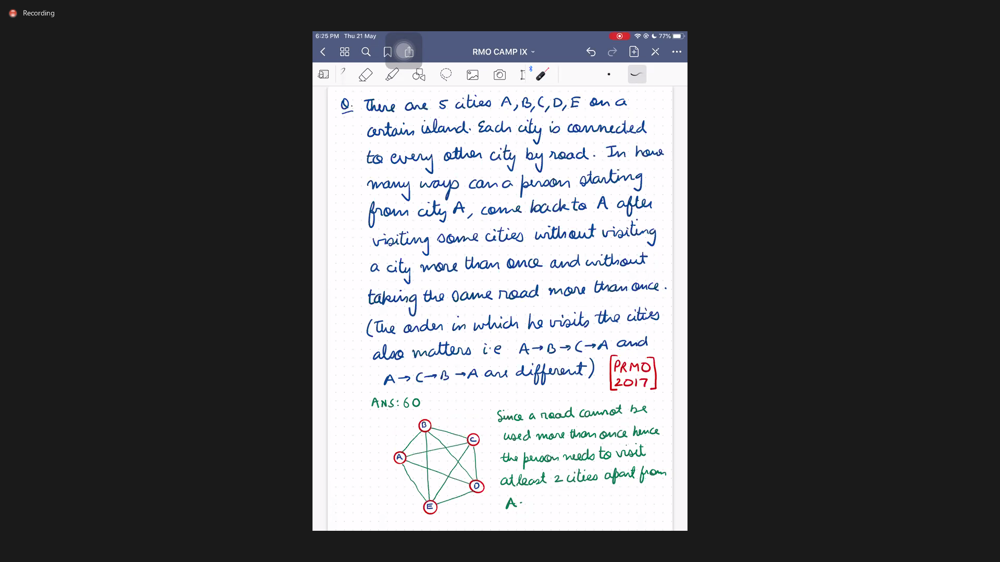 Recording
6:25 PM Thu 21 May
77%
RMO CAMP IX
Q. There are 5 cities A, B, C, D, E on a
certain island. Each city is connected
to every other city by road. In how
many ways can a person starting
from city A, come back to A after
visiting some cities without visiting
a city more than once and without
taking the same road more than once.
(The order in which he visits the cities
also matters i.e A→B→C→A and
A→C→B→A are different)
[PRMO
2017]
ANS: 60
B
C
A
D
E
Since a road cannot be
used more than once hence
the person needs to visit
atleast 2 cities apart from
A.